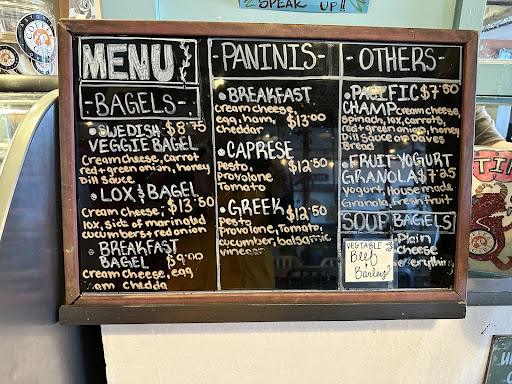 SPEAK UP!!
MENU
-BAGELS-
• SWEDISH $8.75
VEGGIE BAGEL
Cream cheese, carrot
red + green onion, honey
Dill Sauce
• LOX & BAGEL
Cream cheese, $13.50
lox, side of marinated
cucumber + red onion
• BREAKFAST
BAGEL $9.00
cream cheese, egg
am chedda
-PANINIS-
• BREAKFAST
cream cheese
egg, ham, $13.00
cheddar
• CAPRESE
Pesto $12.50
Provolone
Tomato
• GREEK $12.50
pesto
Provolone, Tomato,
cucumber, balsamic
vinegar
-OTHERS-
• PACIFIC $7.50
CHAMP cream cheese,
spinach, lox, carrots,
red + green onion, honey
Dill Sauce on Daves
Bread
• FRUIT YOGURT
GRANOLA $7.25
Yogurt, House made
Granola, Fresh fruit
SOUP
VEGTABLE
Beef
Barley
BAGELS
• Plain
• cheese
• everything